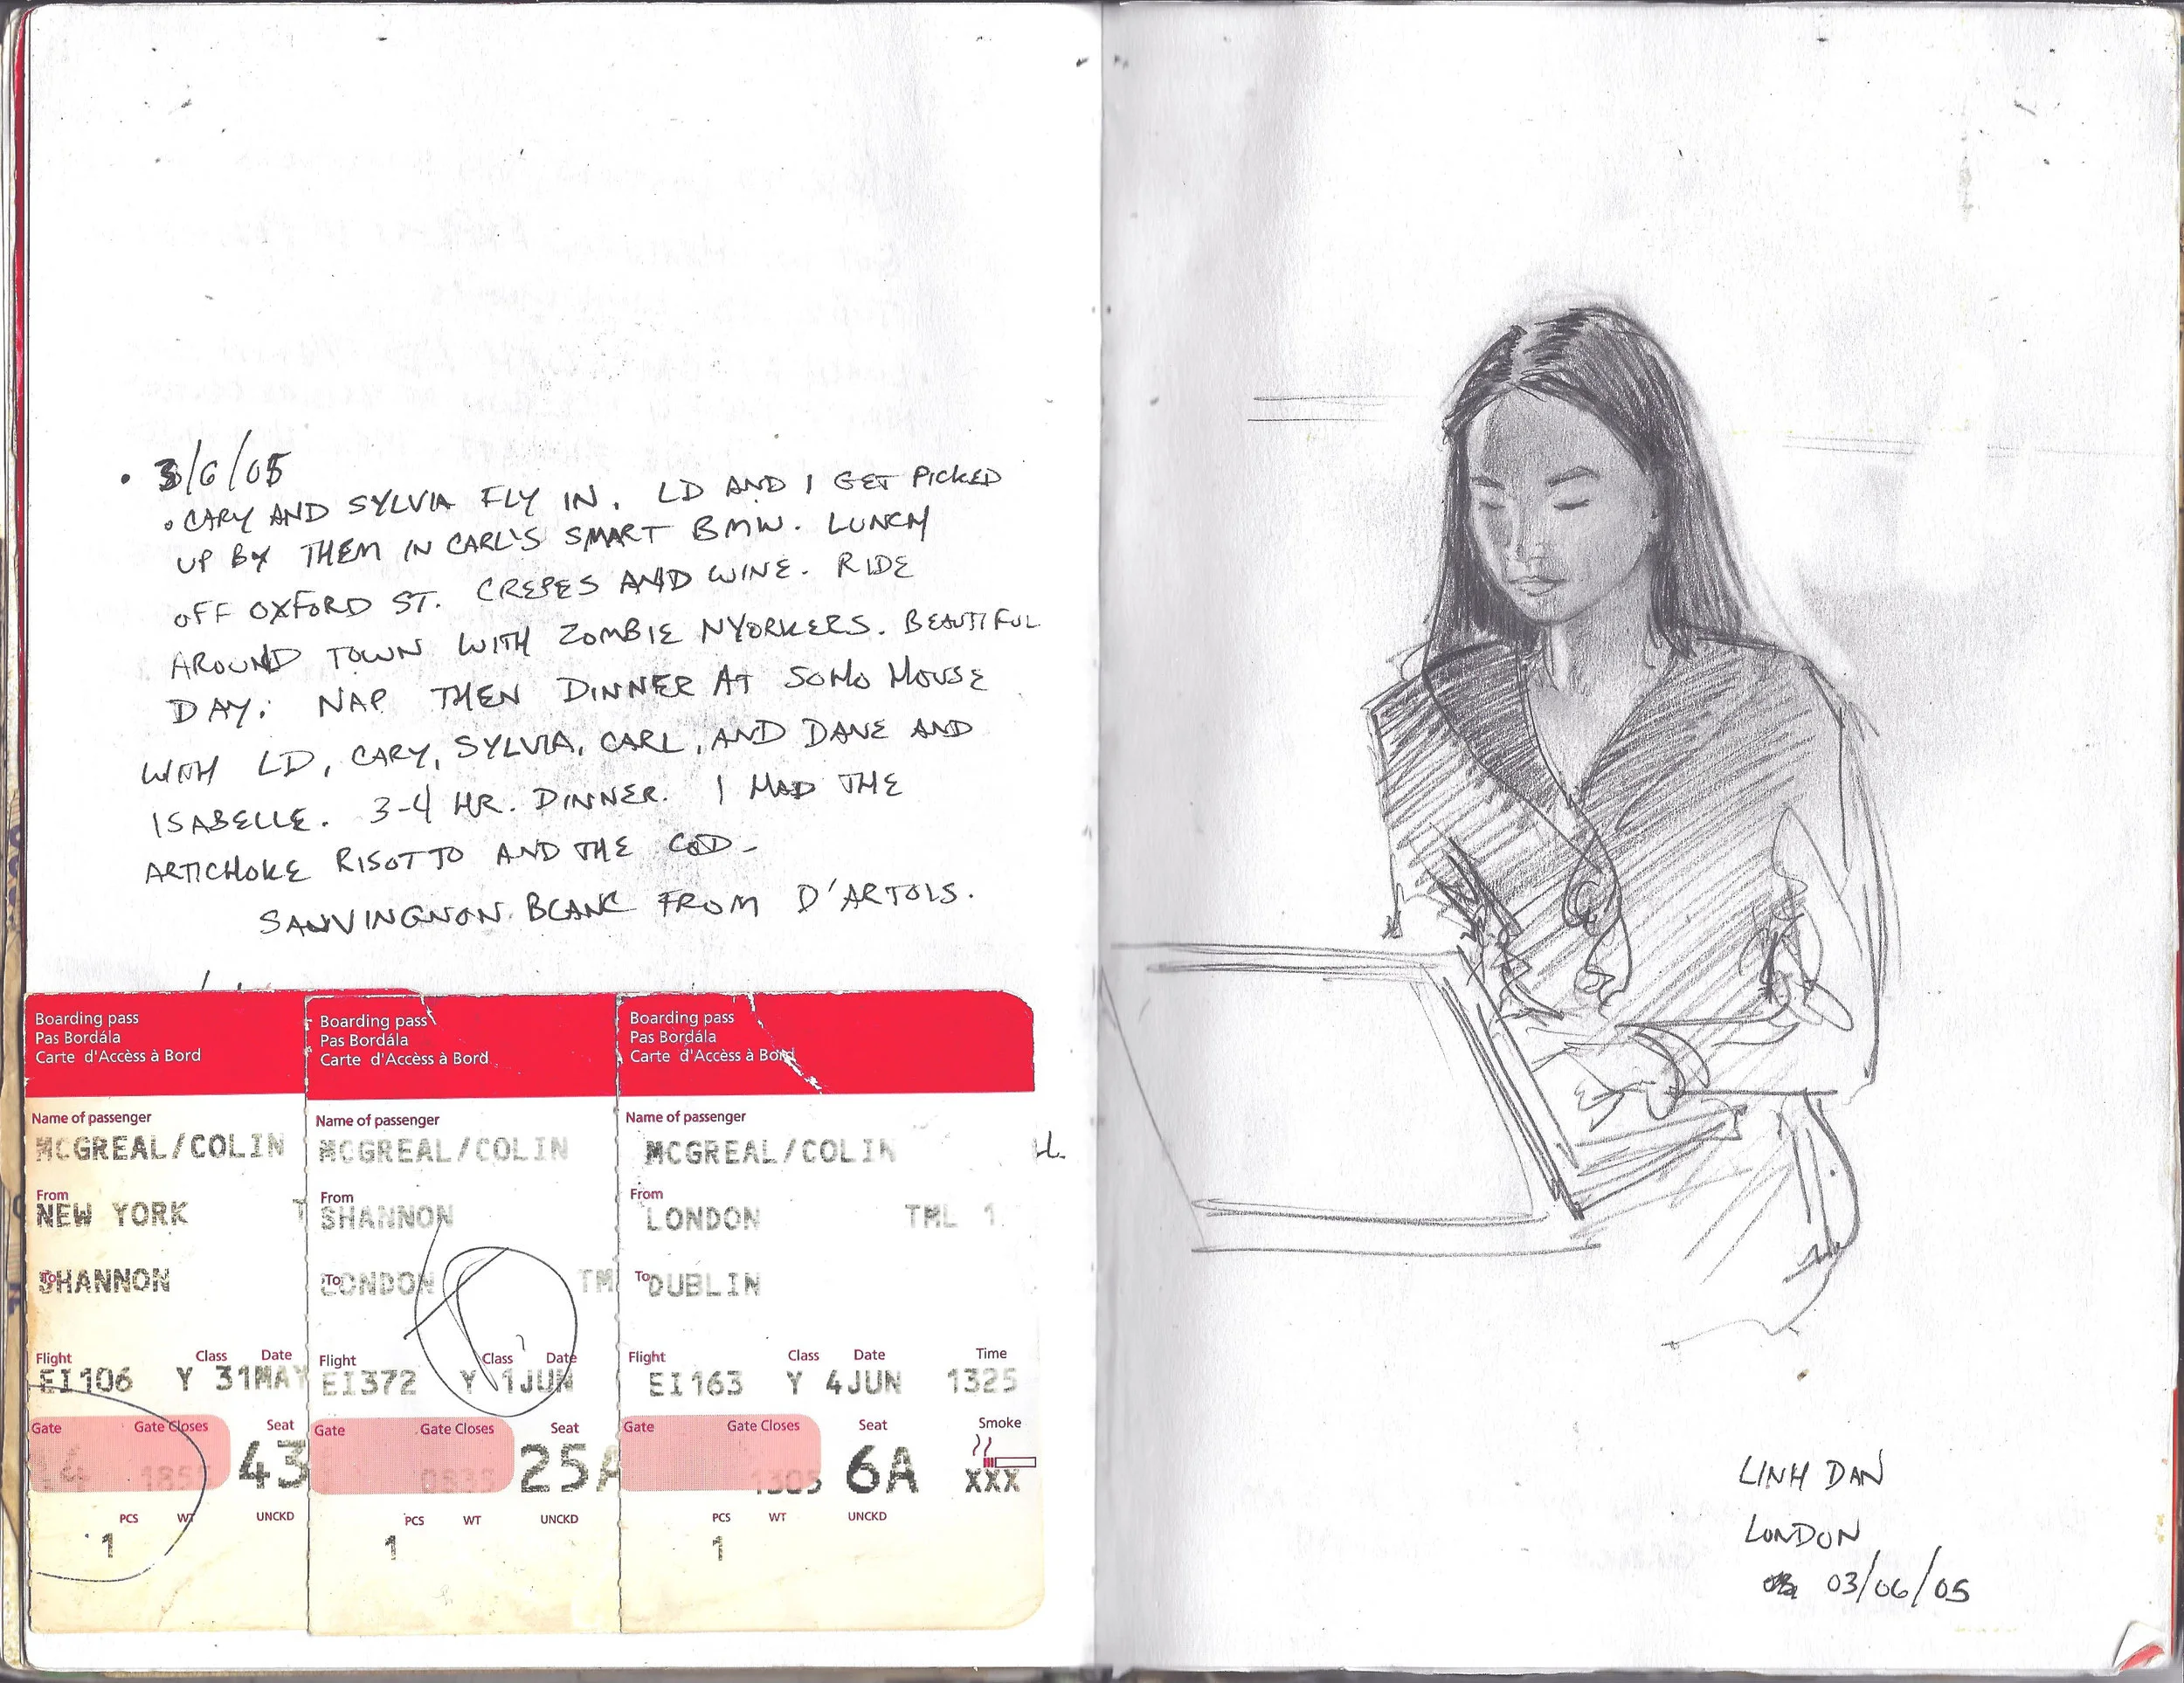 • 3/6/05
• CARY AND SYLVIA FLY IN. LD AND I GET PICKED
UP BY THEM IN CARL'S SMART BMW. LUNCH
OFF OXFORD ST. CREPES AND WINE. RIDE
AROUND TOWN WITH ZOMBIE NYORKERS. BEAUTIFUL
DAY. NAP THEN DINNER AT SOHO HOUSE
WITH LD, CARY, SYLVIA, CARL, AND DANE AND
ISABELLE. 3-4 HR. DINNER. I HAD THE
ARTICHOKE RISOTTO AND THE COD-
SAUVINGNON BLANC FROM D'ARTOIS.
Boarding pass
Pas Bordála
Carte d'Accèss à Bord
Name of passenger
MCGREAL/COLIN
From
NEW YORK T
To
SHANNON
Flight Class Date
EI106 Y 31MAY
Gate Gate Closes Seat
43
PCS WT UNCKD
1
Boarding pass
Pas Bordála
Carte d'Accèss à Bord
Name of passenger
MCGREAL/COLIN
From
SHANNON
To
LONDON TM
Flight Class Date
EI372 Y 1JUN
Gate Gate Closes Seat
0835 25A
PCS WT UNCKD
1
Boarding pass
Pas Bordála
Carte d'Accèss à Bord
Name of passenger
MCGREAL/COLIN
From
LONDON TML 1
To
DUBLIN
Flight Class Date Time
EI163 Y 4JUN 1325
Gate Gate Closes Seat Smoke
1305 6A XXX
PCS WT UNCKD
1
LINH DAN
LONDON
03/06/05